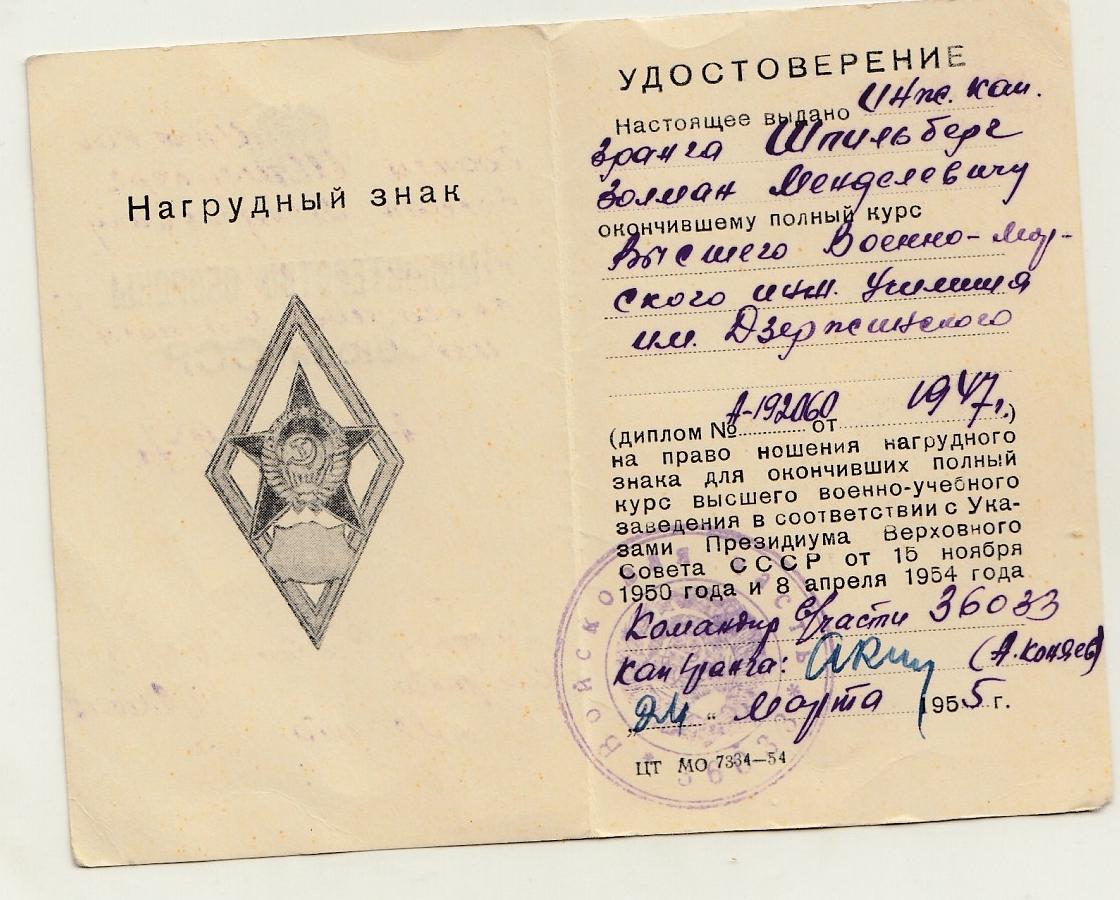 Нагрудный знак
УДОСТОВЕРЕНИЕ
Настоящее выдано Инж. кап.
3 ранга Шпильберг
Залман Менделевичу
окончившему полный курс
Высшего Военно-Мор-
ского инж. Училища
им. Дзержинского
(диплом № А-192060 от 1947 г.)
на право ношения нагрудного
знака для окончивших полный
курс высшего военно-учебного
заведения в соответствии с Ука-
зами Президиума Верховного
Совета СССР от 15 ноября
1950 года и 8 апреля 1954 года
Командир в/части 36033
кап 1 ранга: (А. Коняев)
„24“ марта 1955 г.
ЦТ МО 7334—54
ВОЙСКОВАЯ ЧАСТЬ * 36033 *